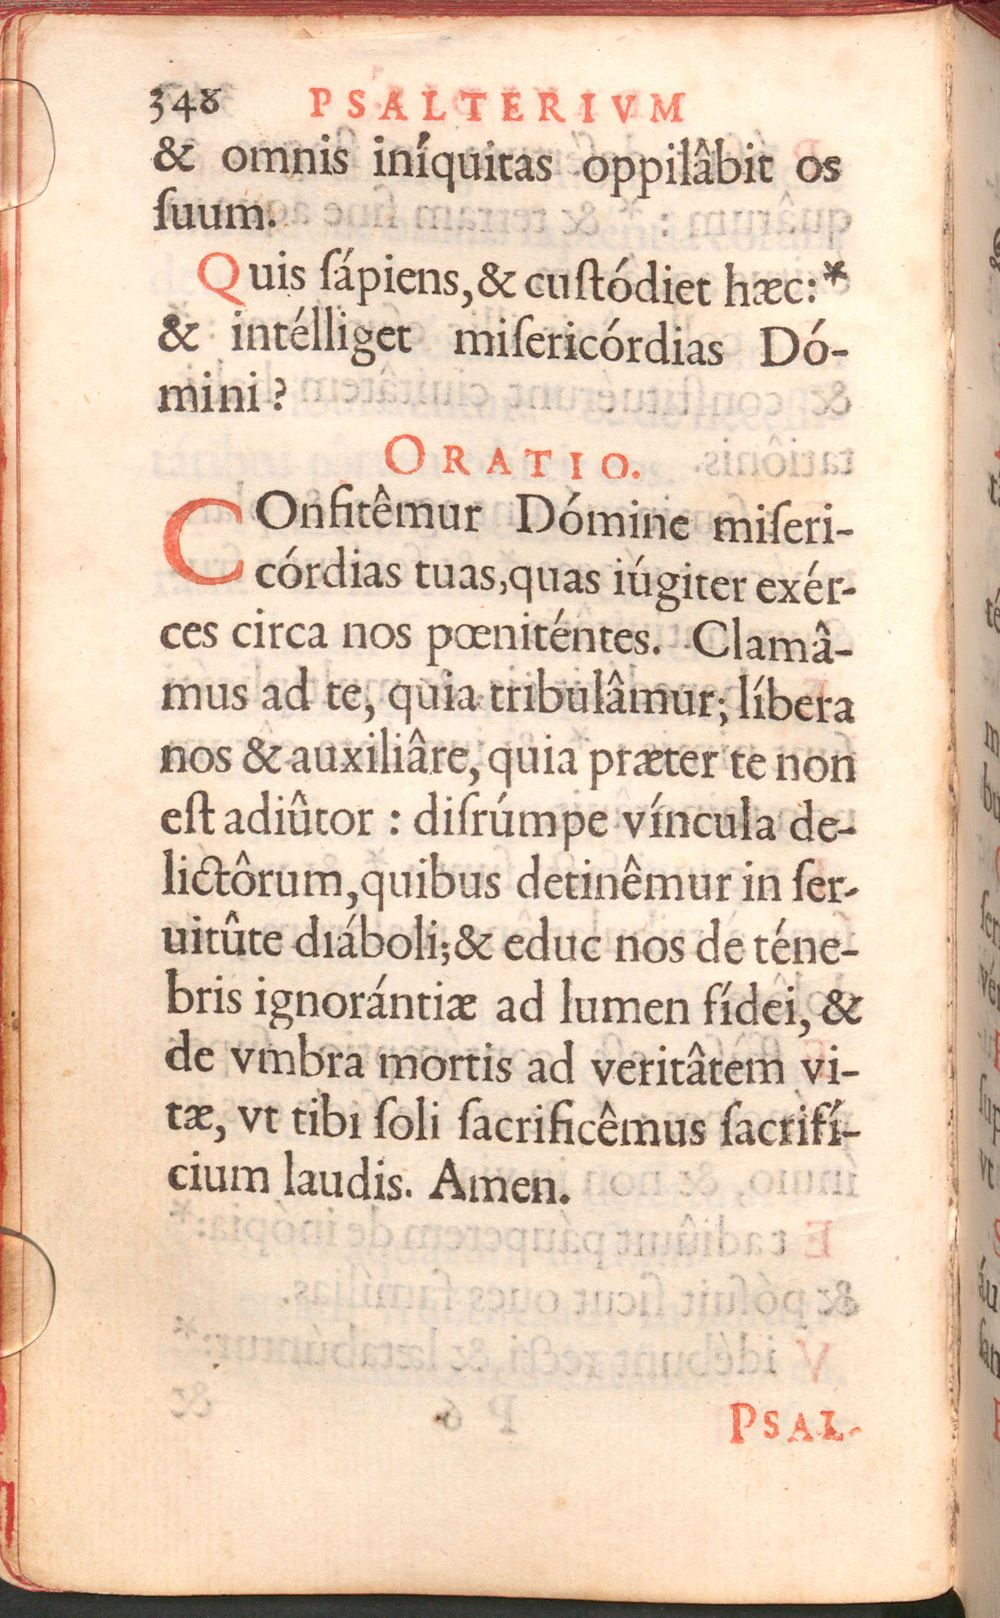 348 PSALTERIVM
& omnis iníquitas oppilâbit os
ſuum.
Quis ſápiens, & cuſtódiet hæc:*
& intélliget miſericórdias Dó-
mini?
ORATIO.
COnfitêmur Dómine miſeri-
córdias tuas, quas iúgiter exér-
ces circa nos pœniténtes. Clamâ-
mus ad te, quia tribulâmur; líbera
nos & auxiliâre, quia præter te non
eſt adiûtor : diſrúmpe víncula de-
lictôrum, quibus detinêmur in ſer-
uitûte diáboli; & educ nos de téne-
bris ignorántiæ ad lumen fídei, &
de vmbra mortis ad veritâtem vi-
tæ, vt tibi ſoli ſacrificêmus ſacrifí-
cium laudis. Amen.
PSAL-